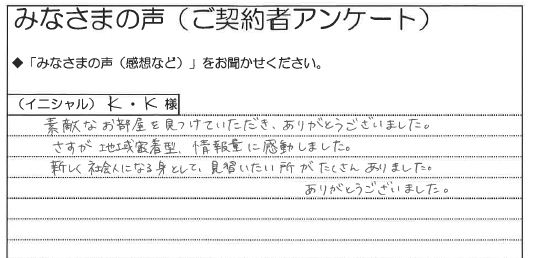 みなさまの声（ご契約者アンケート）
◆「みなさまの声（感想など）」をお聞かせください。
（イニシャル）K・K様
素敵なお部屋を見つけていただき、ありがとうございました。
さすが地域密着型、情報量に感動しました。
新しく社会人になる身として、見習いたい所がたくさんありました。
ありがとうございました。